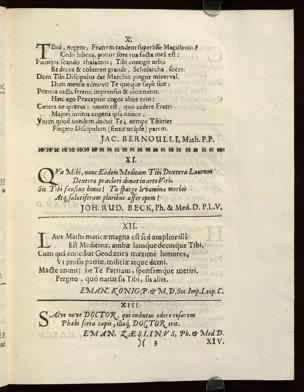 X.
Tene, negem, Fratrem tandem superasse Magistrum?
Cedo lubens, potior sors tua facta mea est:
scando thalamos; Tibi contigit urbis
Et decus & columen grande, Scholarcha, socer.
Dum Tibi Discipulus dat Marchio pingue minerval,
Dum mensae admovit Te quoque saepe suae;
Praemia nulla feremimprensus & incomitatus.
Hinc ego Praeceptor cogor abire tuus:
Caetera ne quaeras: unum est, quo cedere Fratri
Major invita cogeris ipsa minor.
Unum quod nondum docuit Te, nempe Tibimet
Fingere Discipulum (finxit ut ipse) parem.
JAC. BERNOULLI, Math. P.P.
XI.
Qua Mihi, nunc Eadem Medicam Tibi Dextera Laurum
Dextera praeclari donat in arte Viri.
Sic Tibi faustus honos! Tu sparge levamina morbis
Atq, salutiferam pluribus affer opem!
JOH. RUD. BECK, Ph. & Med. D. P.L.V.
XII.
Laus Mathematicae magna est sed amplior illa
Est Medicinae, ambae lausque decusque Tibi.
Cum qua conciliat Geodaetica maximè honores,
Vi pressis patriae militiae atque domi.
Macte animi; sic Te Patriam, sponsamque metiri.
Pergito, quò natus sis Tibi, sis aliis.
EMAN. KÖNIG, P. & M. D. Soc. Imp. Leop. C.
XIII.
Salve nove DOCTOR, qui imbutus odore rosarum
Phoebi serta capis, itaq, DOCTOR eris.
EMAN. ZÆSLINUS, Ph. & Med D.
)( 3
XIV.